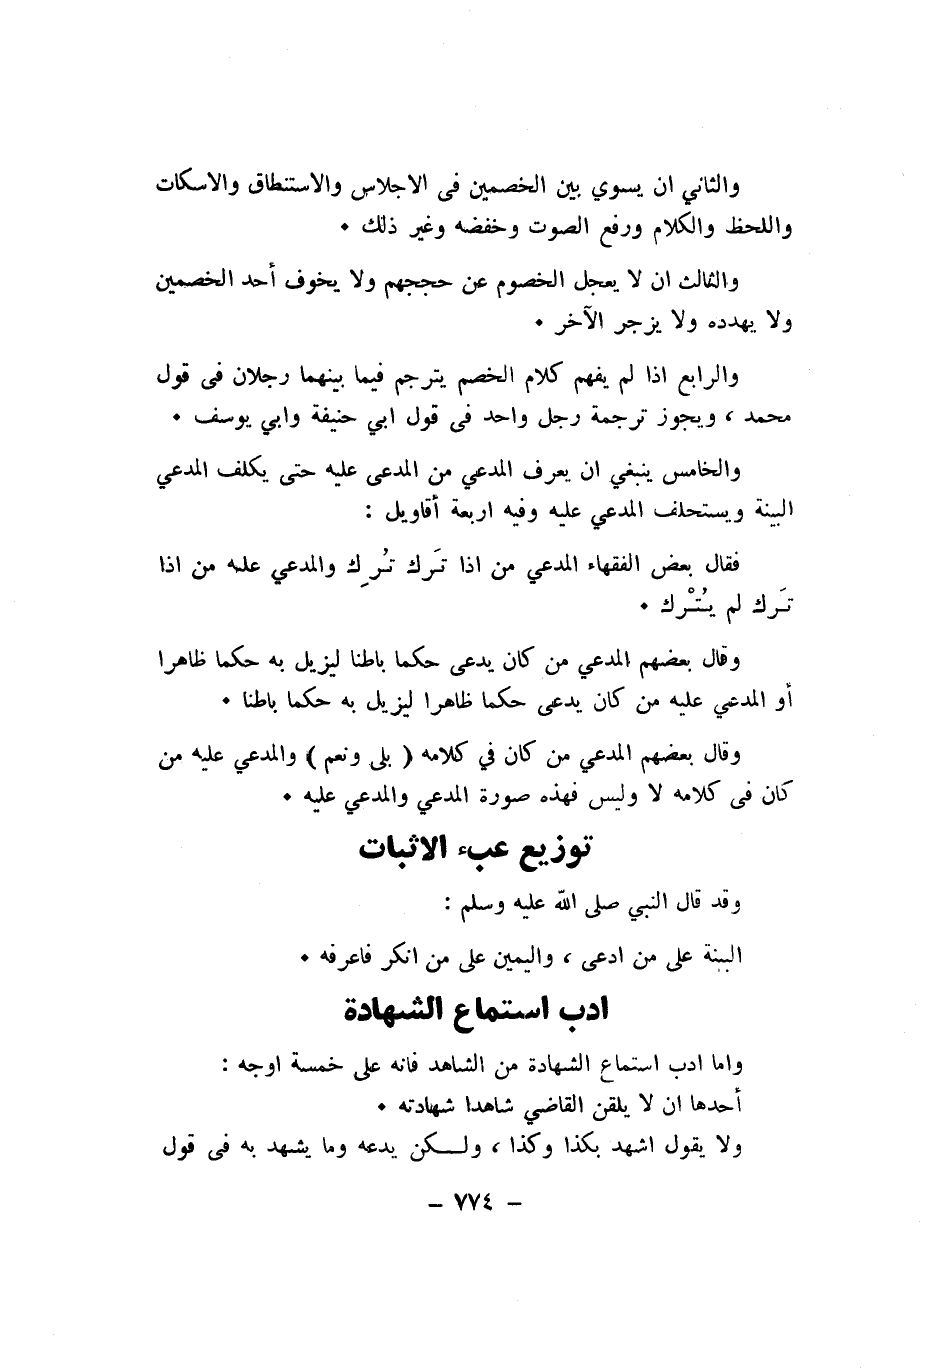 والثاني ان يسوي بين الخصمين فى الاجلاس والاستنطاق والاسكات
واللحظ والكلام ورفع الصوت وخفضه وغير ذلك ٠
والثالث ان لا يعجل الخصوم عن حججهم ولا يخوف أحد الخصمين
ولا يهدده ولا يزجر الآخر ٠
والرابع اذا لم يفهم كلام الخصم يترجم فيما بينهما رجلان فى قول
محمد ، ويجوز ترجمة رجل واحد فى قول ابي حنيفة وابي يوسف ٠
والخامس ينبغي ان يعرف المدعي من المدعى عليه حتى يكلف المدعي
البينة ويستحلف المدعي عليه وفيه اربعة أقاويل :
فقال بعض الفقهاء المدعي من اذا تَرك تُرِك والمدعي عليه من اذا
تَرك لم يُتْرك ٠
وقال بعضهم المدعي من كان يدعى حكما باطنا ليزيل به حكما ظاهرا
أو المدعي عليه من كان يدعى حكما ظاهرا ليزيل به حكما باطنا ٠
وقال بعضهم المدعي من كان في كلامه ( بلى ونعم ) والمدعي عليه من
كان فى كلامه لا وليس فهذه صورة المدعي والمدعي عليه ٠
توزيع عبء الاثبات
وقد قال النبي صلى الله عليه وسلم :
البينة على من ادعى ، واليمين على من انكر فاعرفه ٠
ادب استماع الشهادة
واما ادب استماع الشهادة من الشاهد فانه على خمسة اوجه :
أحدها ان لا يلقن القاضي شاهدا شهادته ٠
ولا يقول اشهد بكذا وكذا ، ولـــكن يدعه وما يشهد به فى قول
– ٧٧٤ –